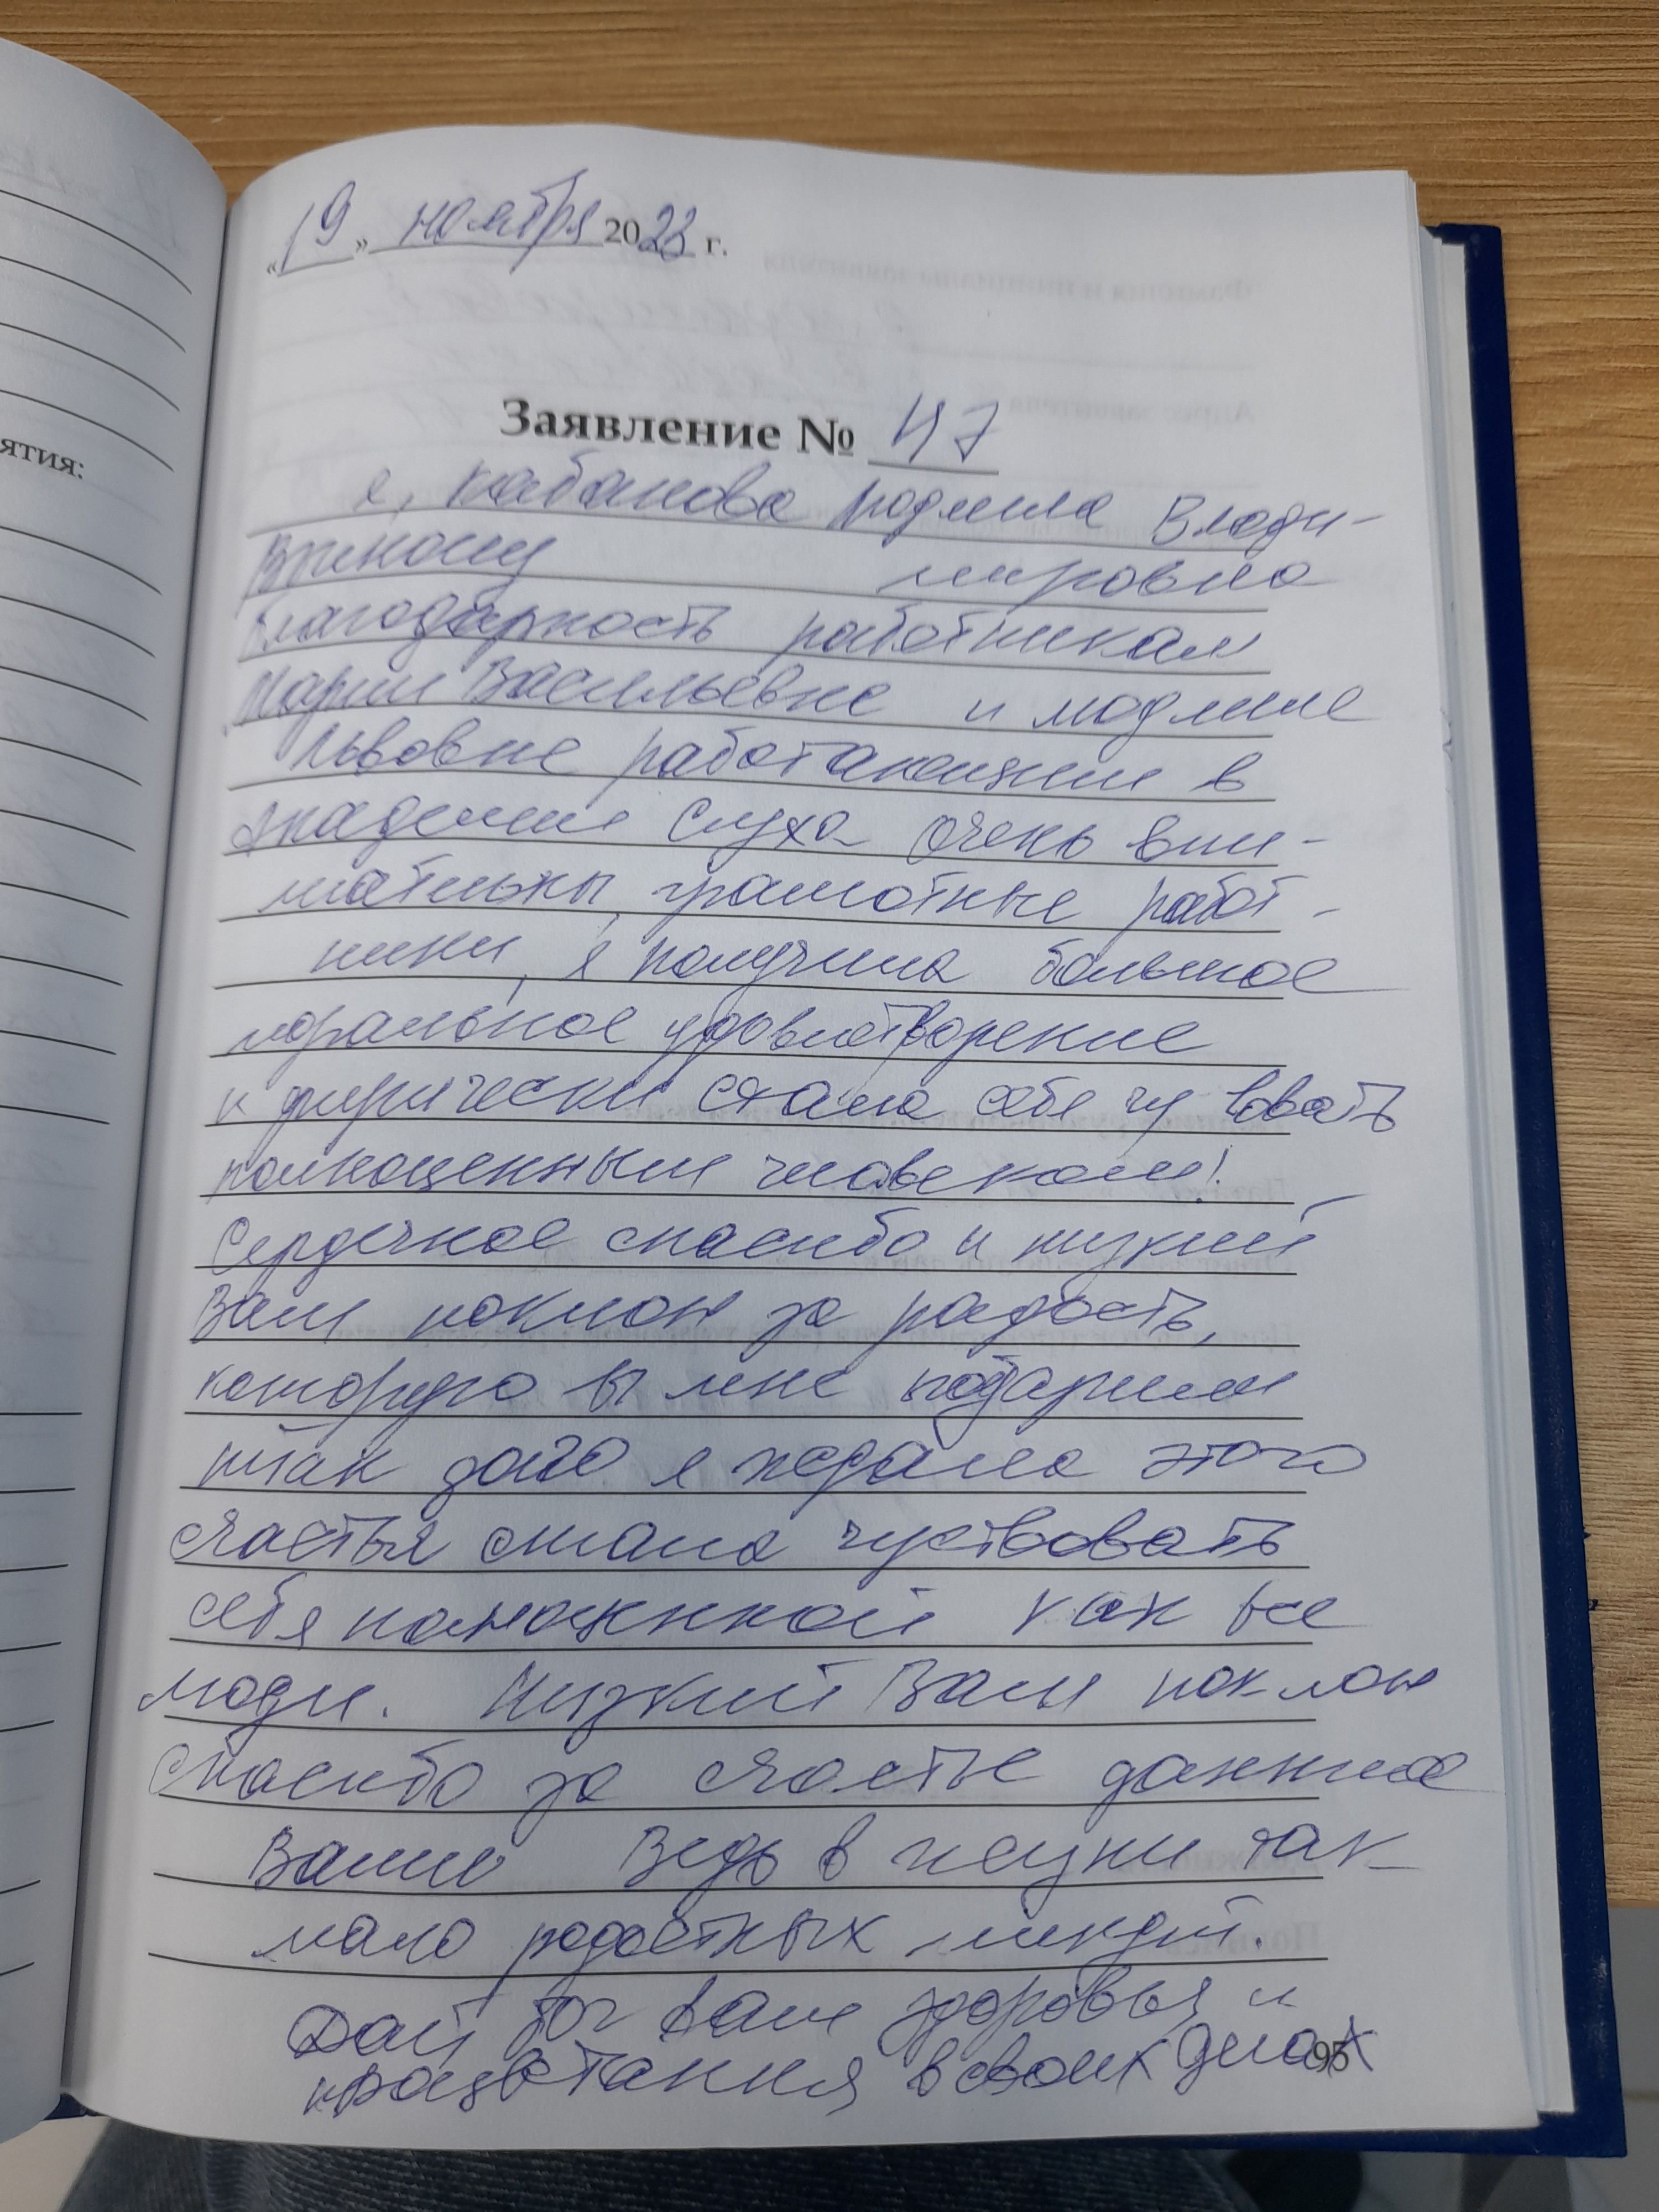 «19» ноября 2023 г.
ятия:
Заявление № 47
я, Кабанова Людмила Влади-
Выношу мировна
благодарность работникам
Марии Васильевне и Людмиле
Львовне работающим в
академии Слуха очень вни-
мательны, грамотные работ-
ники, я получила большое
моральное удовлетворение
и физически стала себе чувовать
полноценным человеком!
Сердечное спасибо и низкий
Вам поклон за радость,
которую вы мне подарили
так долго я ждала этого
счастья стала чуствовать
себя как все
люди. Низкий Вам поклон
спасибо за счастье данное
Вами Ведь в жизни так
мало радостных минут.
Дай бог вам здоровья и
процветания в своих делах
95